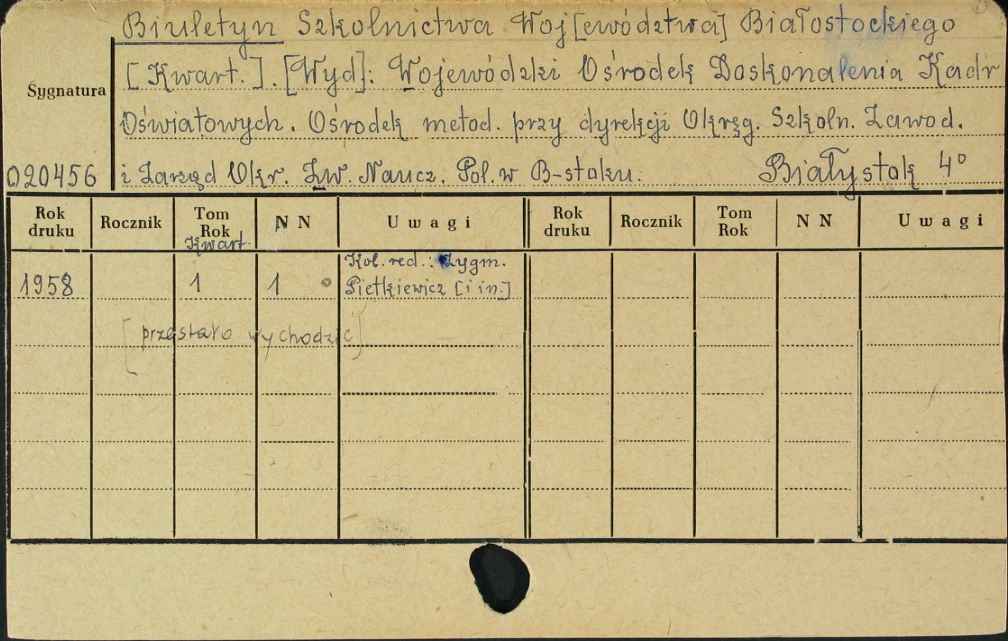 Biuletyn Szkolnictwa Woj[ewództwa] Białostockiego
[Kwart.]. [Wyd]: Wojewódzki Ośrodek Doskonalenia Kadr
Sygnatura
Oświatowych. Ośrodek metod. przy dyrekcji Okręg. Szkoln. Zawod.
020456 i Zarząd Okr. Zw. Naucz. Pol. w B-stoku. Białystok 4°
Rok druku Rocznik Tom Rok Kwart. NN Uwagi Rok druku Rocznik Tom Rok NN Uwagi
Kol. red.: Zygm.
1958 1 1 Pietkiewicz [i in.]
[przestało wychodzić]